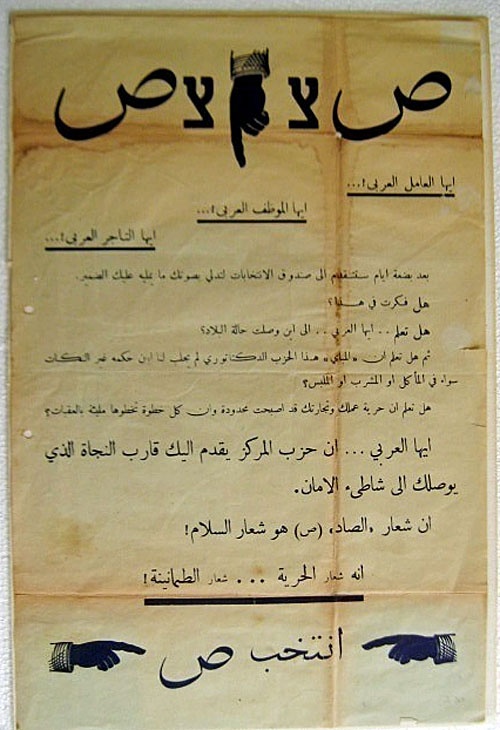 ص צ צ ص
ايها العامل العربي!...
ايها الموظف العربي!...
ايها التاجر العربي!...
بعد بضعة ايام ستتقدم الى صندوق الانتخابات لتدلي بصوتك ما يمليه عليك الضمير.
هل فكرت في هذا؟
هل تعلم .. ايها العربي .. الى اين وصلت حالة البلاد؟
ثم هل تعلم ان «المباي» هذا الحزب الدكتاتوري لم يجلب لنا ابن حكمه غير النكبات
سواء في المأكل او المشرب او الملبس؟
هل تعلم ان حرية عملك وتجارتك قد اصبحت محدودة وان كل خطوة تخطوها مليئة بالعقبات؟
ايها العربي ... ان حزب المركز يقدم اليك قارب النجاة الذي
يوصلك الى شاطىء الامان.
ان شعار «الصاد» (ص) هو شعار السلام!
انه شعار الحرية ... شعار الطمانينة!
انتخب ص